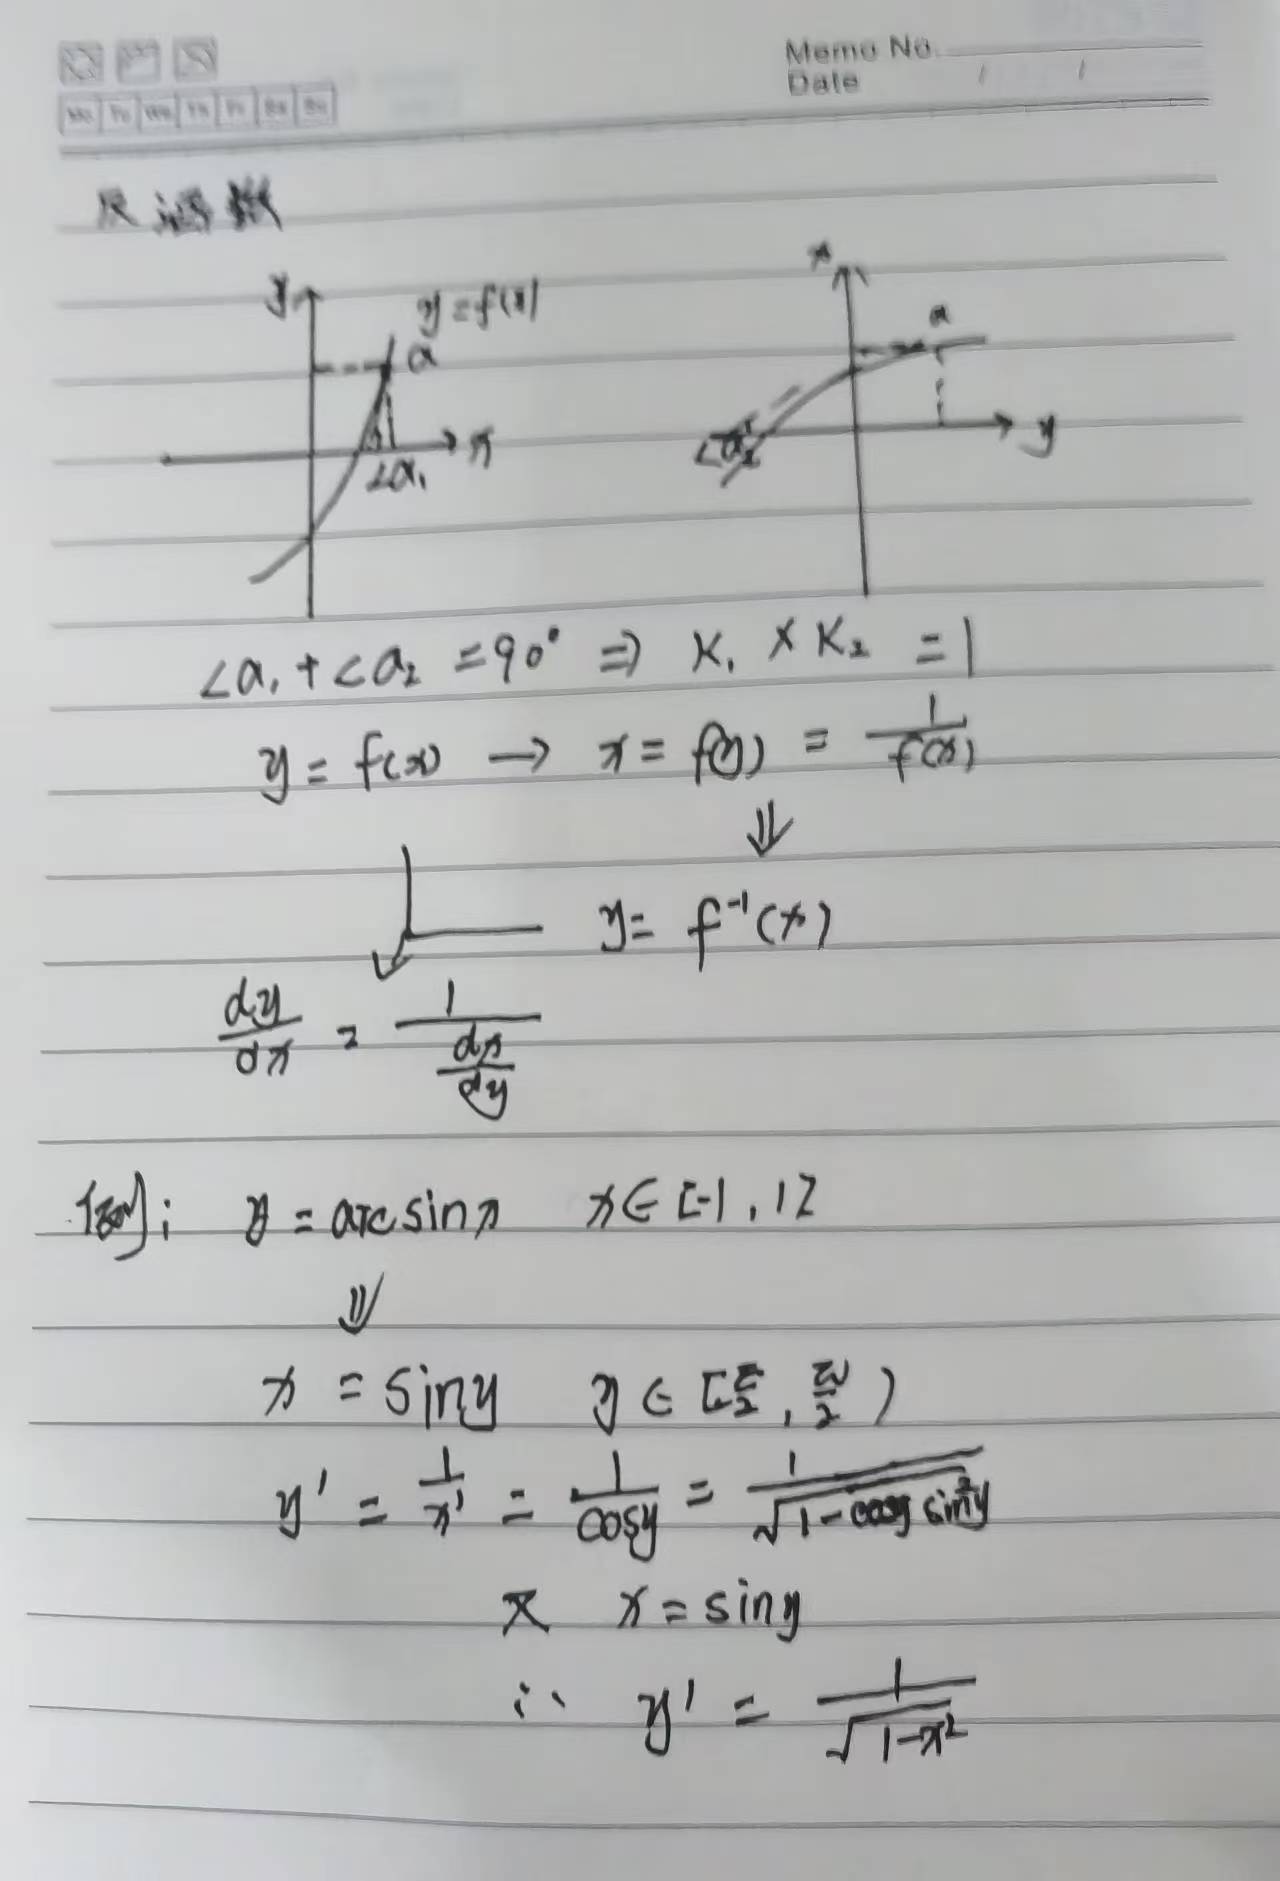 Memo No.
Date / /
Mo Tu We Th Fr Sa Su
反函数
y y=f(x) a x ∠a₁
x a y ∠a₂
∠a₁+∠a₂=90° ⇒ K₁×K₂=1
y=f(x) → x=f(y)=1/f(x)
⇓
y=f⁻¹(x)
dy/dx = 1/(dx/dy)
例: y=arcsinx x∈[-1,1]
⇓
x=siny y∈[π/2, π/2)
y'=1/x'=1/cosy=1/√(1-sin²y)
又 x=siny
∴ y'=1/√(1-x²)